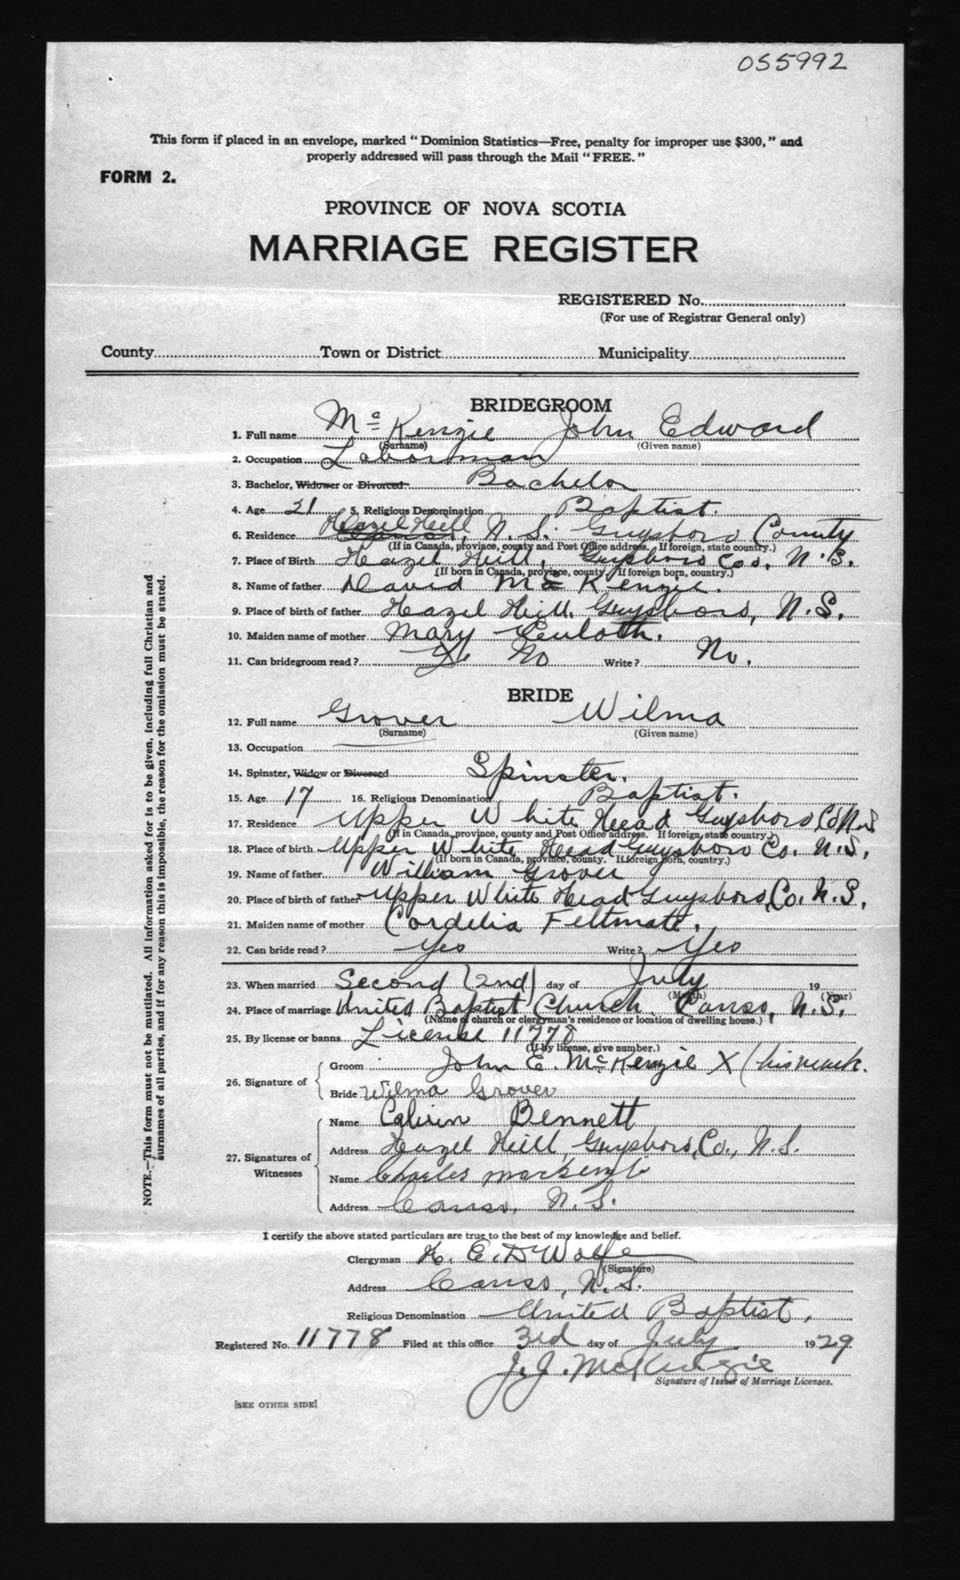 055992
This form if placed in an envelope, marked "Dominion Statistics—Free, penalty for improper use $300," and
properly addressed will pass through the Mail "FREE."
FORM 2.
PROVINCE OF NOVA SCOTIA
MARRIAGE REGISTER
REGISTERED No.
(For use of Registrar General only)
County Town or District Municipality
BRIDEGROOM
1. Full name McKenzie John Edward
(Surname) (Given name)
2. Occupation Laborman
3. Bachelor, Widower or Divorced Bachelor
4. Age 21 5. Religious Denomination Baptist.
6. Residence Hazel Hill, N.S. Guysboro County
(If in Canada, province, county and Post Office address. If foreign, state country.)
7. Place of Birth Hazel Hill, Guysboro Co., N.S.
(If born in Canada, province, county. If foreign born, country.)
8. Name of father David McKenzie.
9. Place of birth of father Hazel Hill, Guysboro, N.S.
10. Maiden name of mother Mary
11. Can bridegroom read? No Write? No.
BRIDE
12. Full name Grover Wilma
(Surname) (Given name)
13. Occupation
14. Spinster, Widow or Divorced Spinster.
15. Age 17 16. Religious Denomination Baptist.
17. Residence Upper White Head Guysboro Co N.S
(If in Canada, province, county and Post Office address. If foreign, state country.)
18. Place of birth Upper White Head Guysboro Co. N.S.
(If born in Canada, province, county. If foreign born, country.)
19. Name of father William Grover
20. Place of birth of father Upper White Head Guysboro, Co. N.S.
21. Maiden name of mother Cordelia Feltmate.
22. Can bride read? Yes Write? Yes
23. When married Second (2nd) day of July 19
(Month) (Year)
24. Place of marriage United Baptist Church, Canso, N.S.
(Name of church or clergyman's residence or location of dwelling house.)
25. By license or banns License 11778
(If by license, give number.)
26. Signature of Groom John E. McKenzie X (his mark.
Bride Wilma Grover
27. Signatures of Witnesses
Name Calvin Bennett
Address Hazel Hill, Guysboro, Co., N.S.
Name Charles
Address Canso, N.S.
I certify the above stated particulars are true to the best of my knowledge and belief.
Clergyman H. E. DeWolfe
(Signature)
Address Canso, N.S.
Religious Denomination United Baptist.
Registered No. 11778 Filed at this office 3rd day of July 1929
J. J. McKenzie
Signature of Issuer of Marriage Licenses.
[SEE OTHER SIDE]
NOTE.—This form must not be mutilated. All information asked for is to be given, including full Christian and
surnames of all parties, and if for any reason this is impossible, the reason for the omission must be stated.